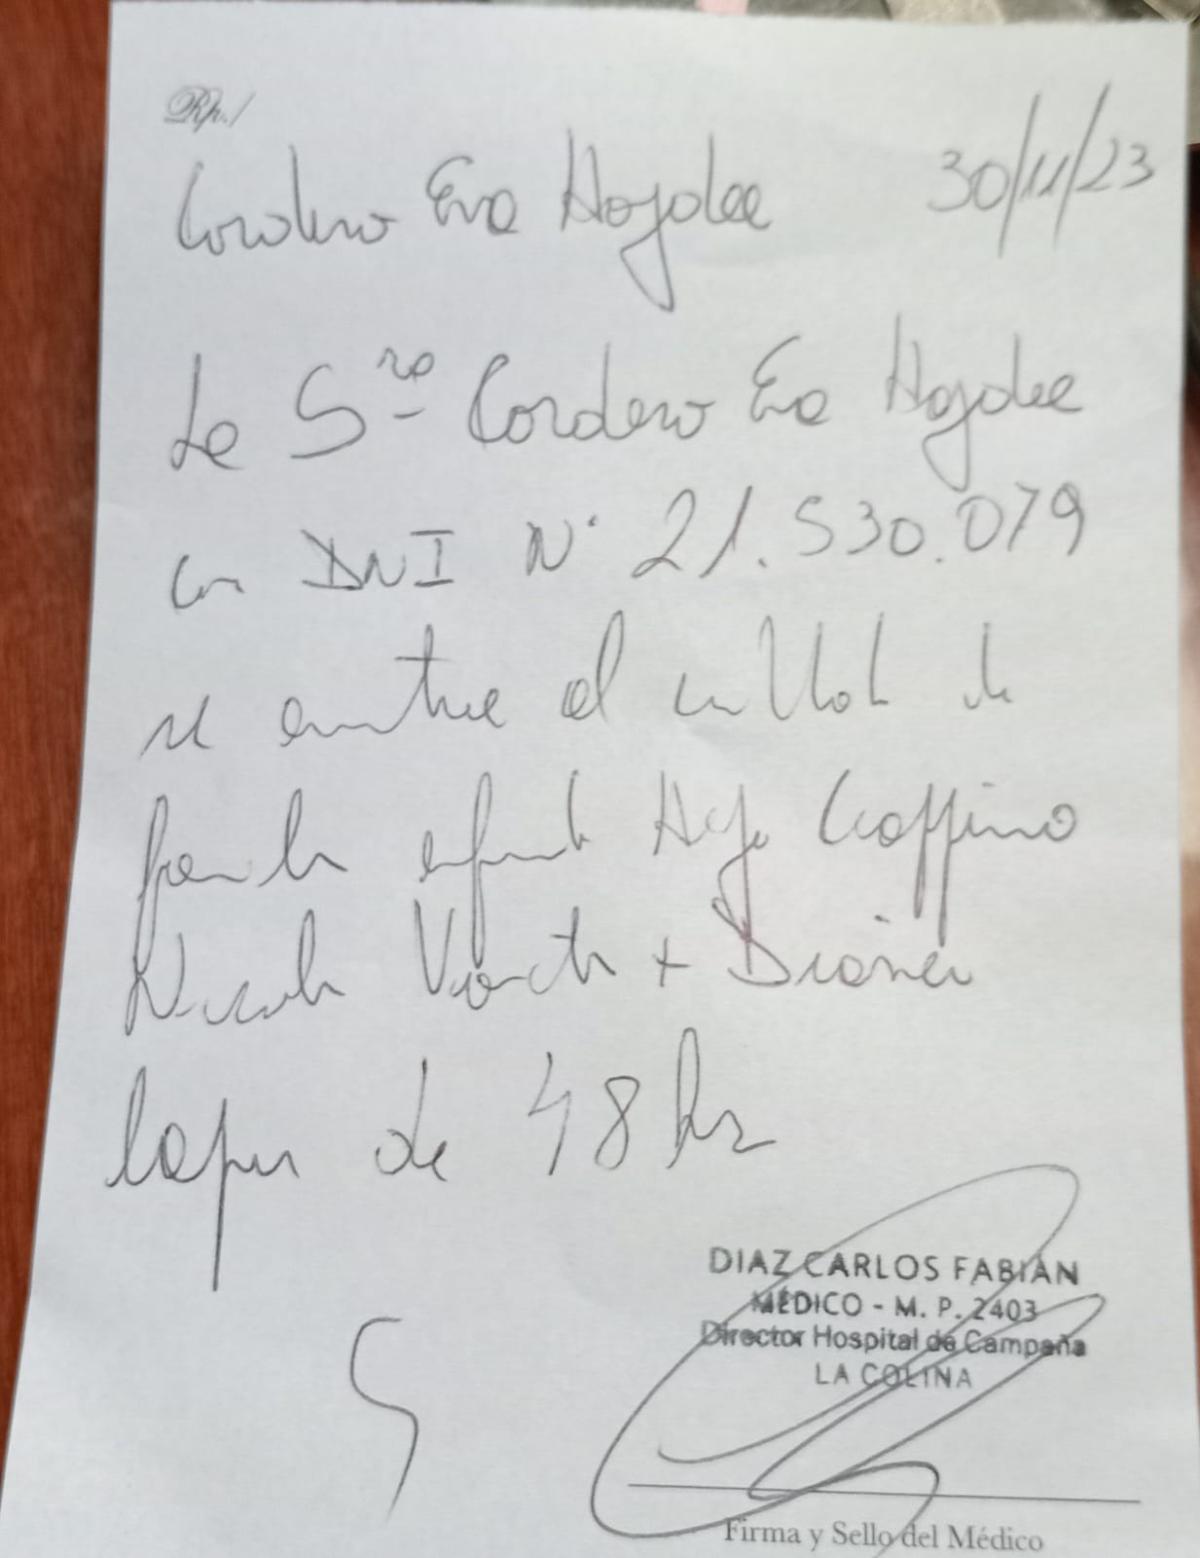 Rp./
Cordero Eva Haydee 30/11/23
La Sra Cordero Eva Haydee
con DNI N° 21.530.079
se encuentra al cuidado de
familiar enfermo Hijo
+
lapso de 48 hs
DIAZ CARLOS FABIAN
MÉDICO - M. P. 2403
Director Hospital de Campaña
LA COLINA
Firma y Sello del Médico